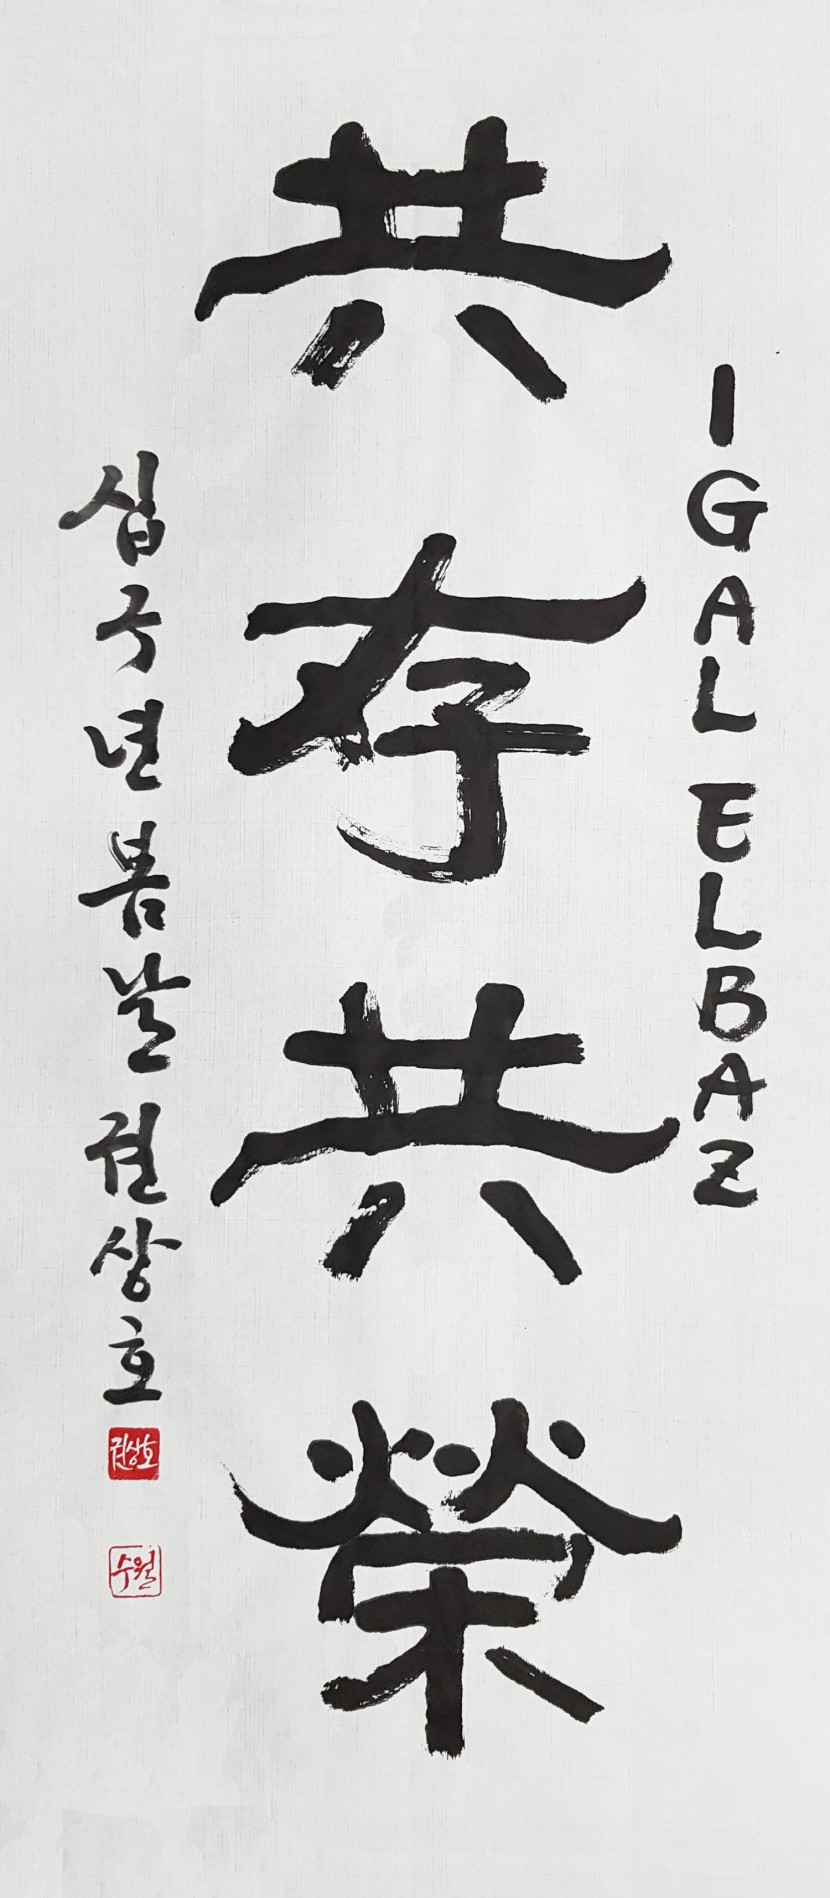 IGAL ELBAZ
共存共榮
십구년봄날권상호
권상호
수월